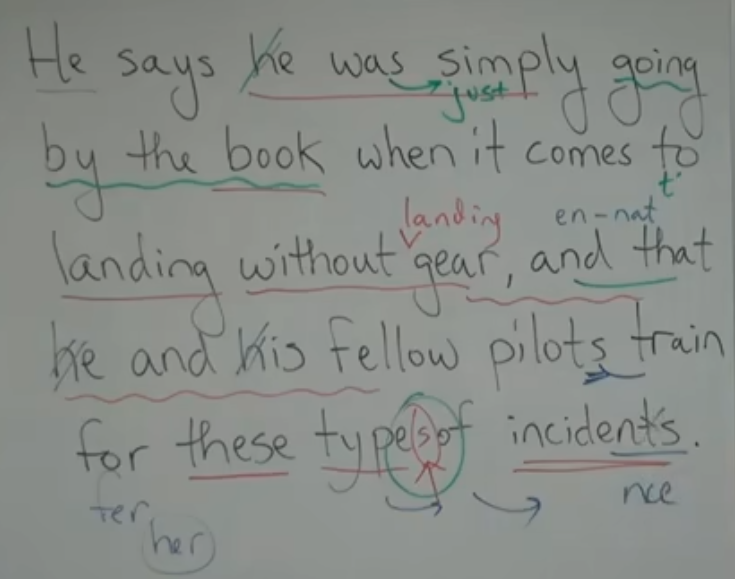 He says he was simply going
just
by the book when it comes to
t'
landing en-nat
landing without gear, and that
he and his fellow pilots train
for these types of incidents.
ter nce
her